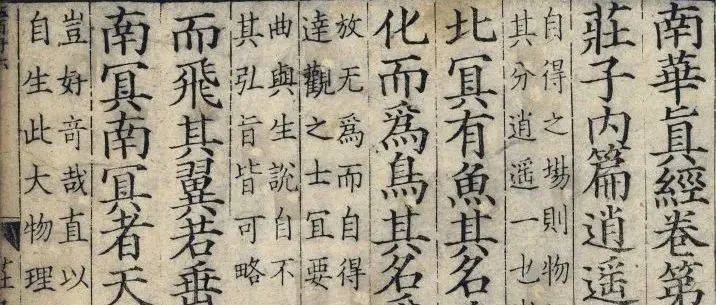 南華眞經卷第
莊子内篇逍遥
自得之塲則物
其分逍遥一也
北冥有魚其名
化而爲鳥其名
放无爲而自得
達觀之士冝要
曲與生說自不
其弘旨皆可略
而飛其翼若垂
南冥南冥者天
豈好竒哉直以
自生此大物理